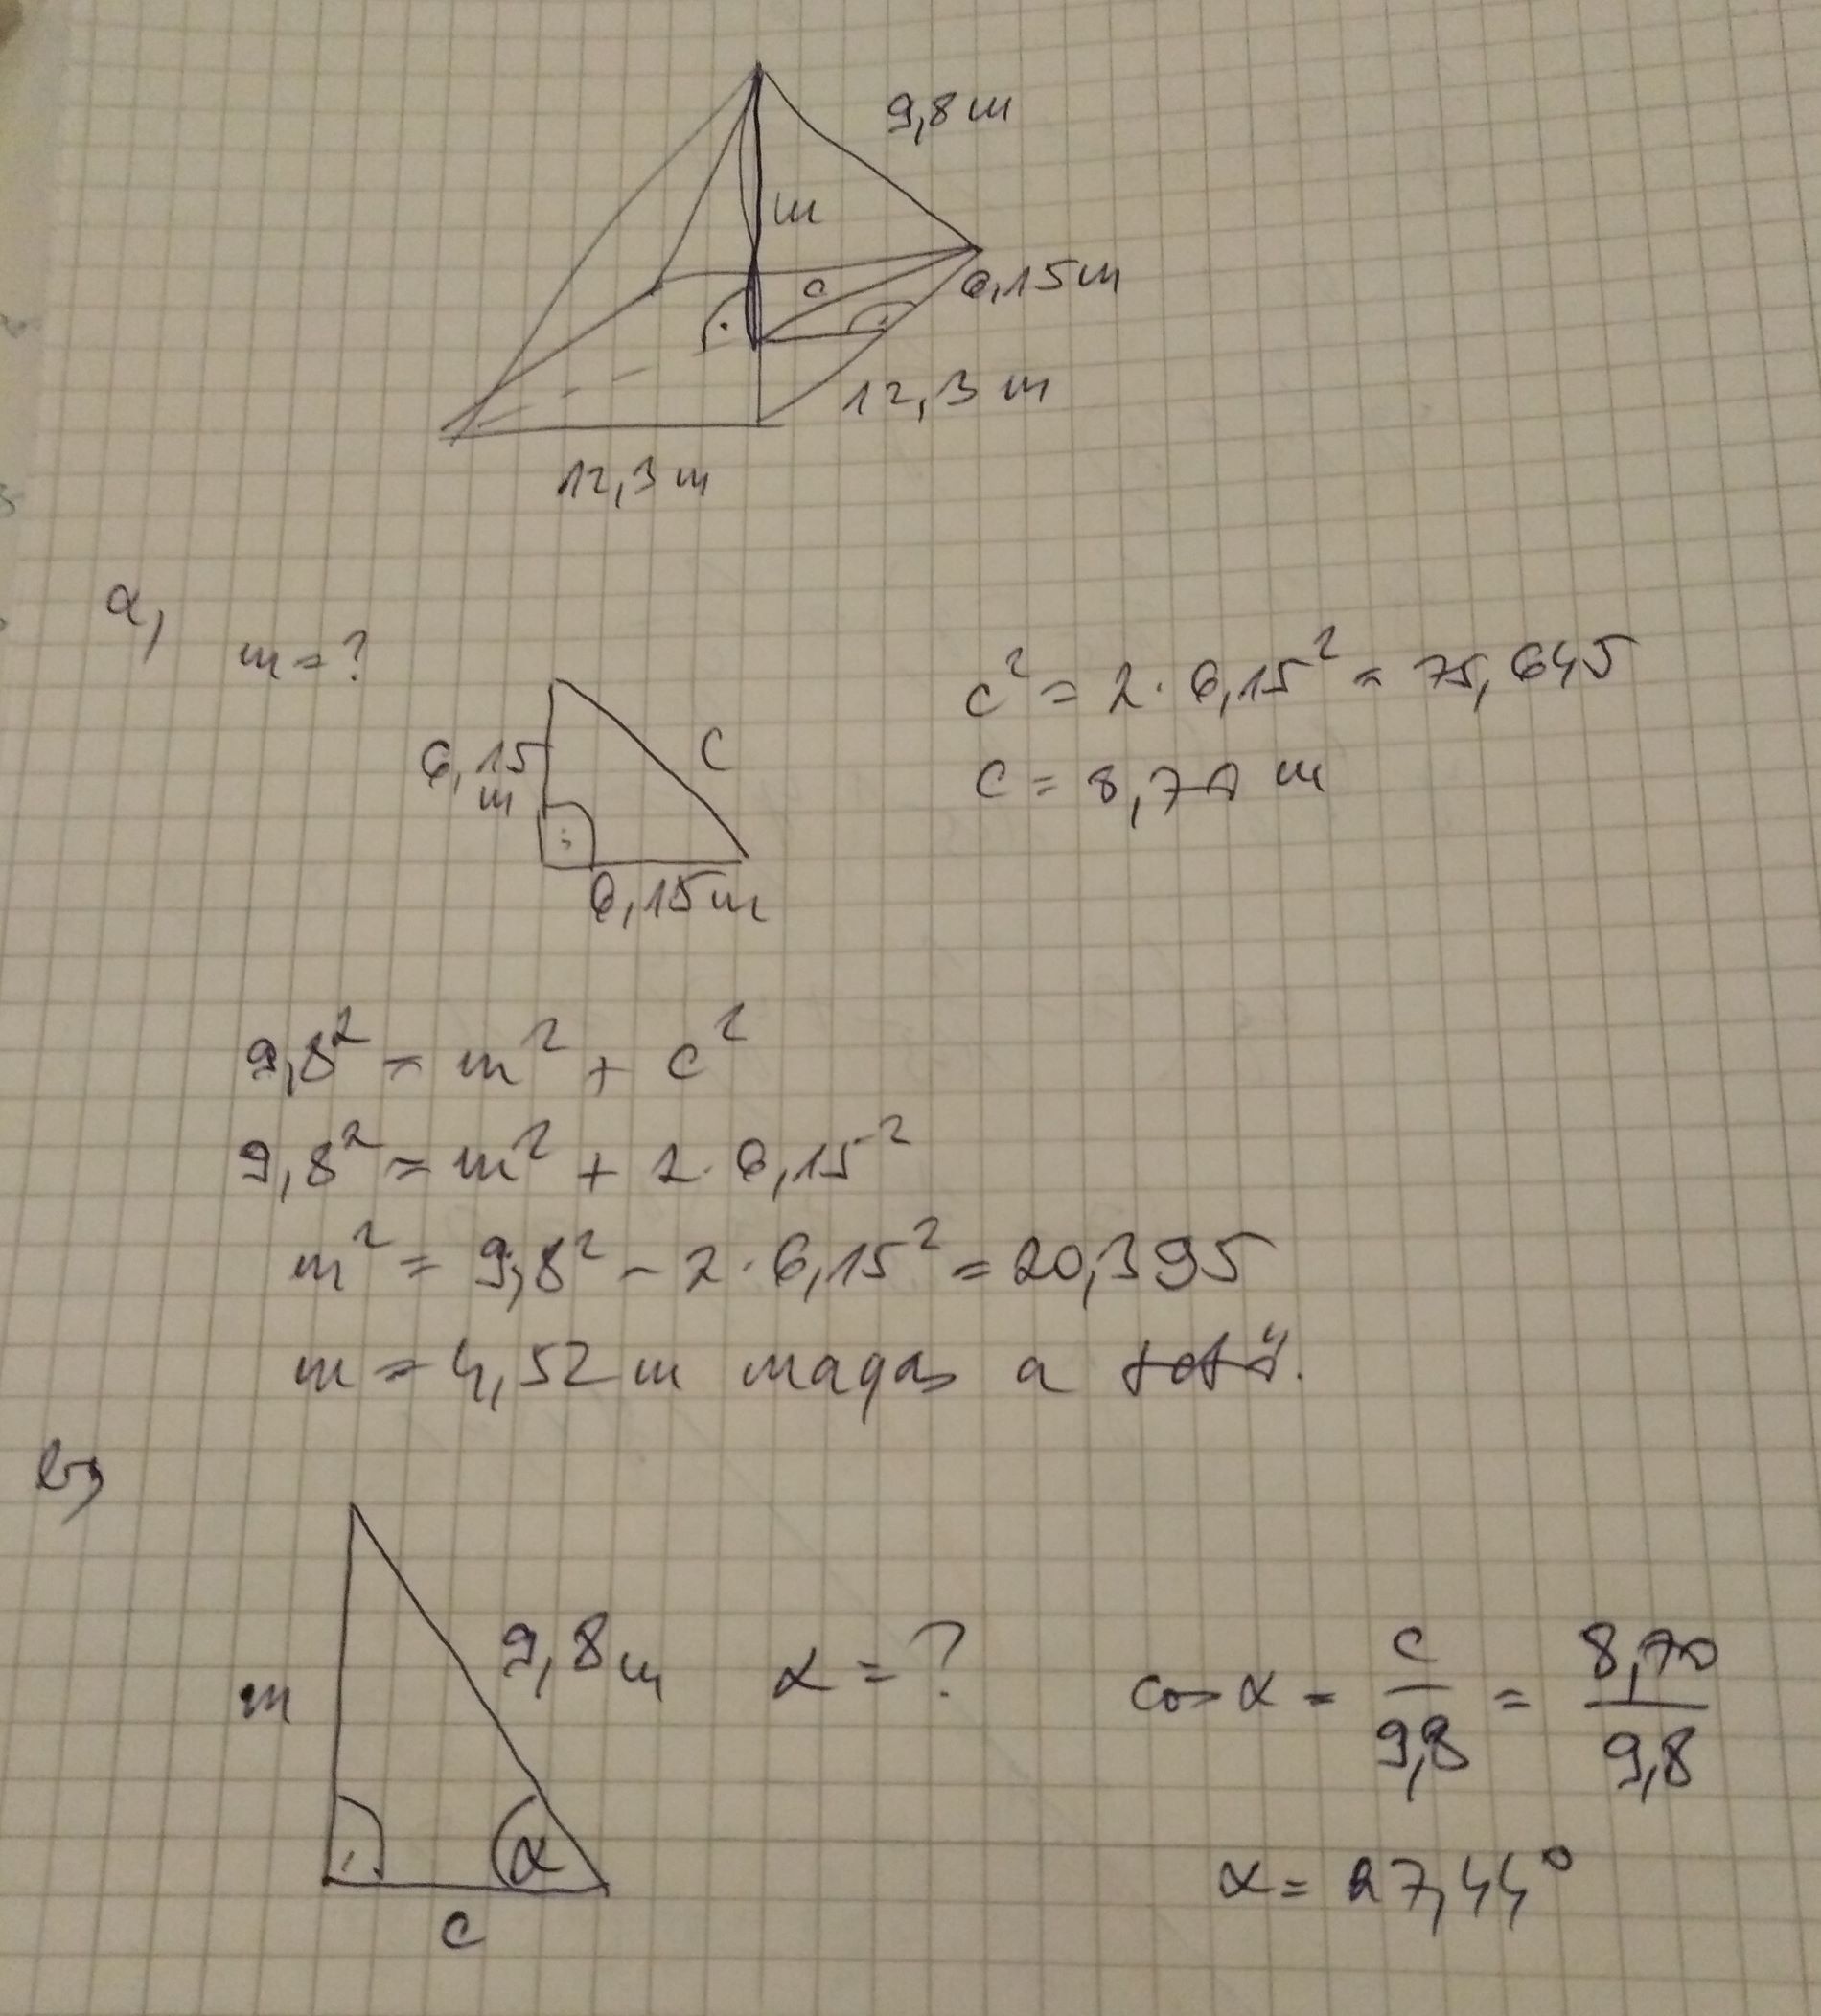 9,8 m
m
c
6,15 m
12,3 m
12,3 m
a,
m = ?
c² = 2 · 6,15² = 75,645
6,15 m
c
c = 8,70 m
6,15 m
9,8² = m² + c²
9,8² = m² + 2 · 6,15²
m² = 9,8² - 2 · 6,15² = 20,395
m = 4,52 m magas a tető.
b,
m
9,8 m
α = ?
cos α = c/9,8 = 8,70/9,8
α
c
α = 27,44°